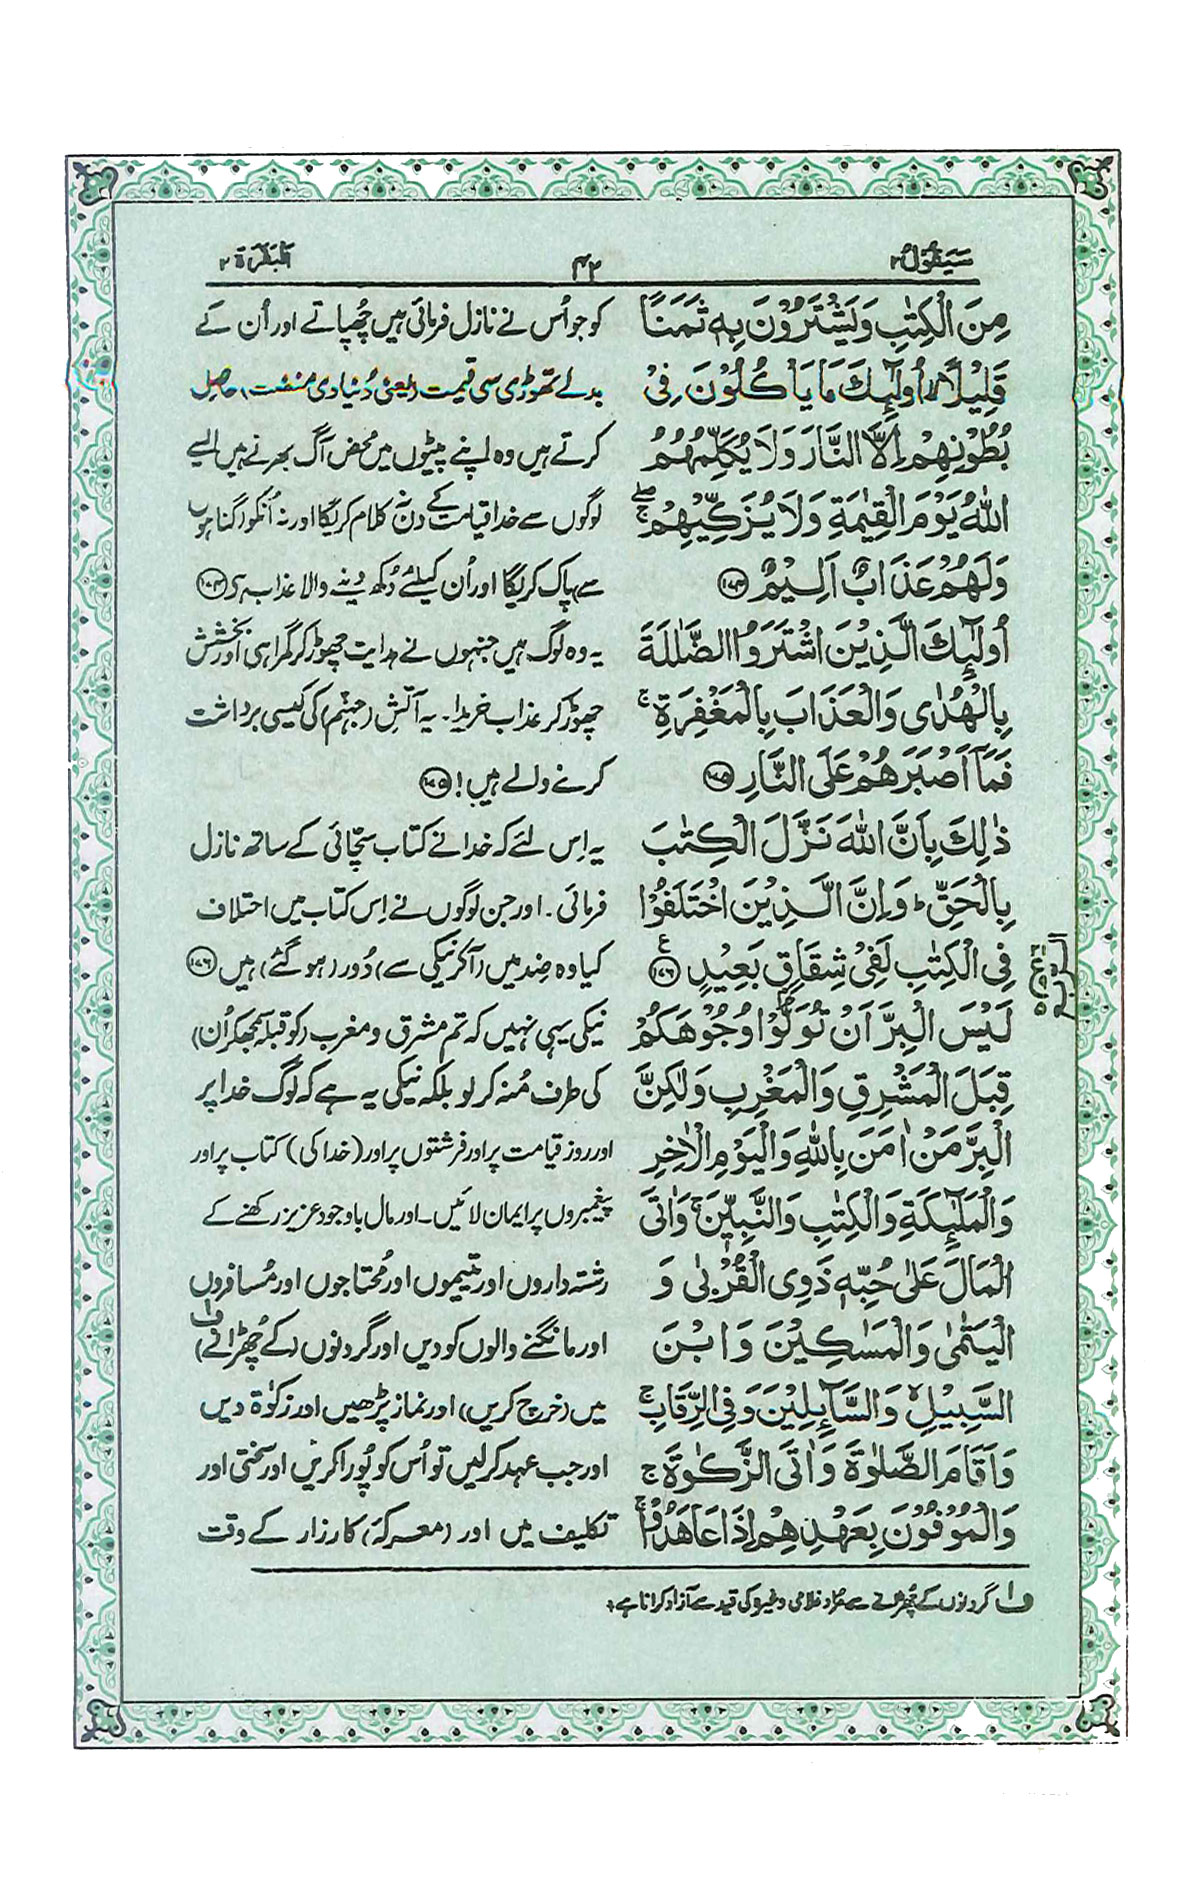 سَيَقُوْلُ ٢
٤٢
اَلْبَقَرَة ٢
مِنَ الْكِتٰبِ وَيَشْتَرُوْنَ بِهٖ ثَمَنًا
قَلِيْلًا ۙ اُولٰٓئِكَ مَا يَاْكُلُوْنَ فِيْ
بُطُوْنِهِمْ اِلَّا النَّارَ وَلَا يُكَلِّمُهُمُ
اللّٰهُ يَوْمَ الْقِيٰمَةِ وَلَا يُزَكِّيْهِمْ ۖۚ
وَلَهُمْ عَذَابٌ اَلِيْمٌ ﴿۱۷۴﴾
اُولٰٓئِكَ الَّذِيْنَ اشْتَرَوُا الضَّلٰلَةَ
بِالْهُدٰى وَالْعَذَابَ بِالْمَغْفِرَةِ ۚ
فَمَآ اَصْبَرَهُمْ عَلَى النَّارِ ﴿۱۷۵﴾
ذٰلِكَ بِاَنَّ اللّٰهَ نَزَّلَ الْكِتٰبَ
بِالْحَقِّ ؕ وَاِنَّ الَّذِيْنَ اخْتَلَفُوْا
فِى الْكِتٰبِ لَفِيْ شِقَاقٍ بَعِيْدٍ ﴿۱۷۶﴾ ع
لَيْسَ الْبِرَّ اَنْ تُوَلُّوْا وُجُوْهَكُمْ
قِبَلَ الْمَشْرِقِ وَالْمَغْرِبِ وَلٰكِنَّ
الْبِرَّ مَنْ اٰمَنَ بِاللّٰهِ وَالْيَوْمِ الْاٰخِرِ
وَالْمَلٰٓئِكَةِ وَالْكِتٰبِ وَالنَّبِيّٖنَ ۚ وَاٰتَى
الْمَالَ عَلٰى حُبِّهٖ ذَوِى الْقُرْبٰى وَ
الْيَتٰمٰى وَالْمَسٰكِيْنَ وَابْنَ
السَّبِيْلِ ۙ وَالسَّآئِلِيْنَ وَفِى الرِّقَابِ ۚ
وَاَقَامَ الصَّلٰوةَ وَاٰتَى الزَّكٰوةَ ۚ
وَالْمُوْفُوْنَ بِعَهْدِهِمْ اِذَا عَاهَدُوْا ۚ
کو جو اُس نے نازل فرمائی ہیں چُھپاتے اور اُن کے
بدلے تھوڑی سی قیمت (یعنی دُنیاوی منفعت) حاصل
کرتے ہیں وہ اپنے پیٹوں میں محض آگ بھرتے ہیں ایسے
لوگوں سے خدا قیامت کے دن نہ کلام کریگا اور نہ اُنکو (گناہوں
سے) پاک کریگا اور اُن کیلئے دُکھ دینے والا عذاب ہے ﴿۱۷۴﴾
یہ وہ لوگ ہیں جنہوں نے ہدایت چھوڑ کر گمراہی اور بخشش
چھوڑ کر عذاب خریدا۔ یہ آتش (جہنّم) کی کیسی برداشت
کرنے والے ہیں! ﴿۱۷۵﴾
یہ اِس لئے کہ خدا نے کتاب سچّائی کے ساتھ نازل
فرمائی۔ اور جن لوگوں نے اِس کتاب میں اختلاف
کیا وہ ضِد میں (آ کر نیکی سے) دُور (ہو گئے) ہیں ﴿۱۷۶﴾
نیکی یہی نہیں کہ تم مشرق و مغرب (کو قبلہ سمجھکر اُن)
کی طرف مُنہ کر لو بلکہ نیکی یہ ہے کہ لوگ خدا پر
اور روزِ قیامت پر اور فرشتوں پر اور (خدا کی) کتاب پر اور
پیغمبروں پر ایمان لائیں۔ اور مال باوجود عزیز رکھنے کے
رشتہ داروں اور یتیموں اور مُحتاجوں اور مُسافروں
اور مانگنے والوں کو دیں اور گردنوں (کے چُھڑانے) ف۱
میں (خرچ کریں) اور نماز پڑھیں اور زکوٰۃ دیں
اور جب عہد کر لیں تو اُس کو پُورا کریں اور سختی اور
تکلیف میں اور (معرکۂ) کارزار کے وقت
ف۱ گردنوں کے چُھڑانے سے مراد غلامی وغیرہ کی قید سے آزاد کرانا ہے۔